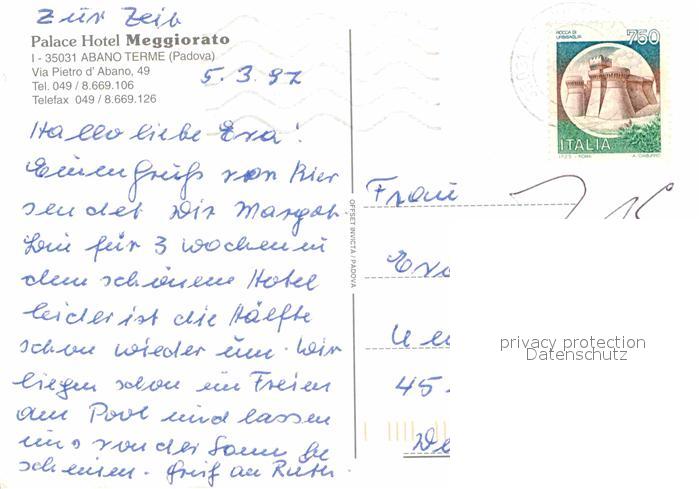 Zur Zeit
Palace Hotel Meggiorato
I - 35031 ABANO TERME (Padova)
Via Pietro d' Abano, 49
Tel. 049 / 8.669.106
Telefax 049 / 8.669.126
5.3.97
Hallo liebe Eva!
Einen Gruß von hier
sendet Dir Margot.
Bin für 3 Wochen in
dem schönen Hotel
leider ist die Hälfte
schon wieder um. Wir
liegen schon im Freien
am Pool und lassen
uns von der Sonne be
scheinen. Gruß an Ruth.
OFFSET INVICTA / PADOVA
ROCCA DI URBISAGLIA
750
ITALIA
I.P.Z.S. - ROMA
Frau
privacy protection
Datenschutz
45